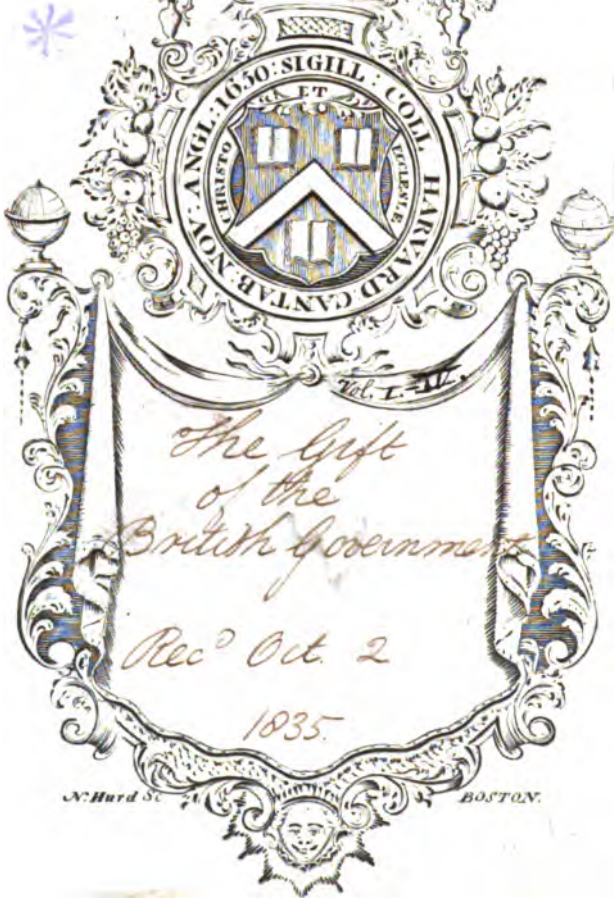 SIGILL : COLL HARVARD : CANTAB : NOV : ANGL : 1650 :
ET
CHRISTO
ECCLESIÆ
Vol. I.-IV.
The Gift
of the
British Government
Rec<sup>d</sup> Oct. 2
1835.
N. Hurd Sc
BOSTON.